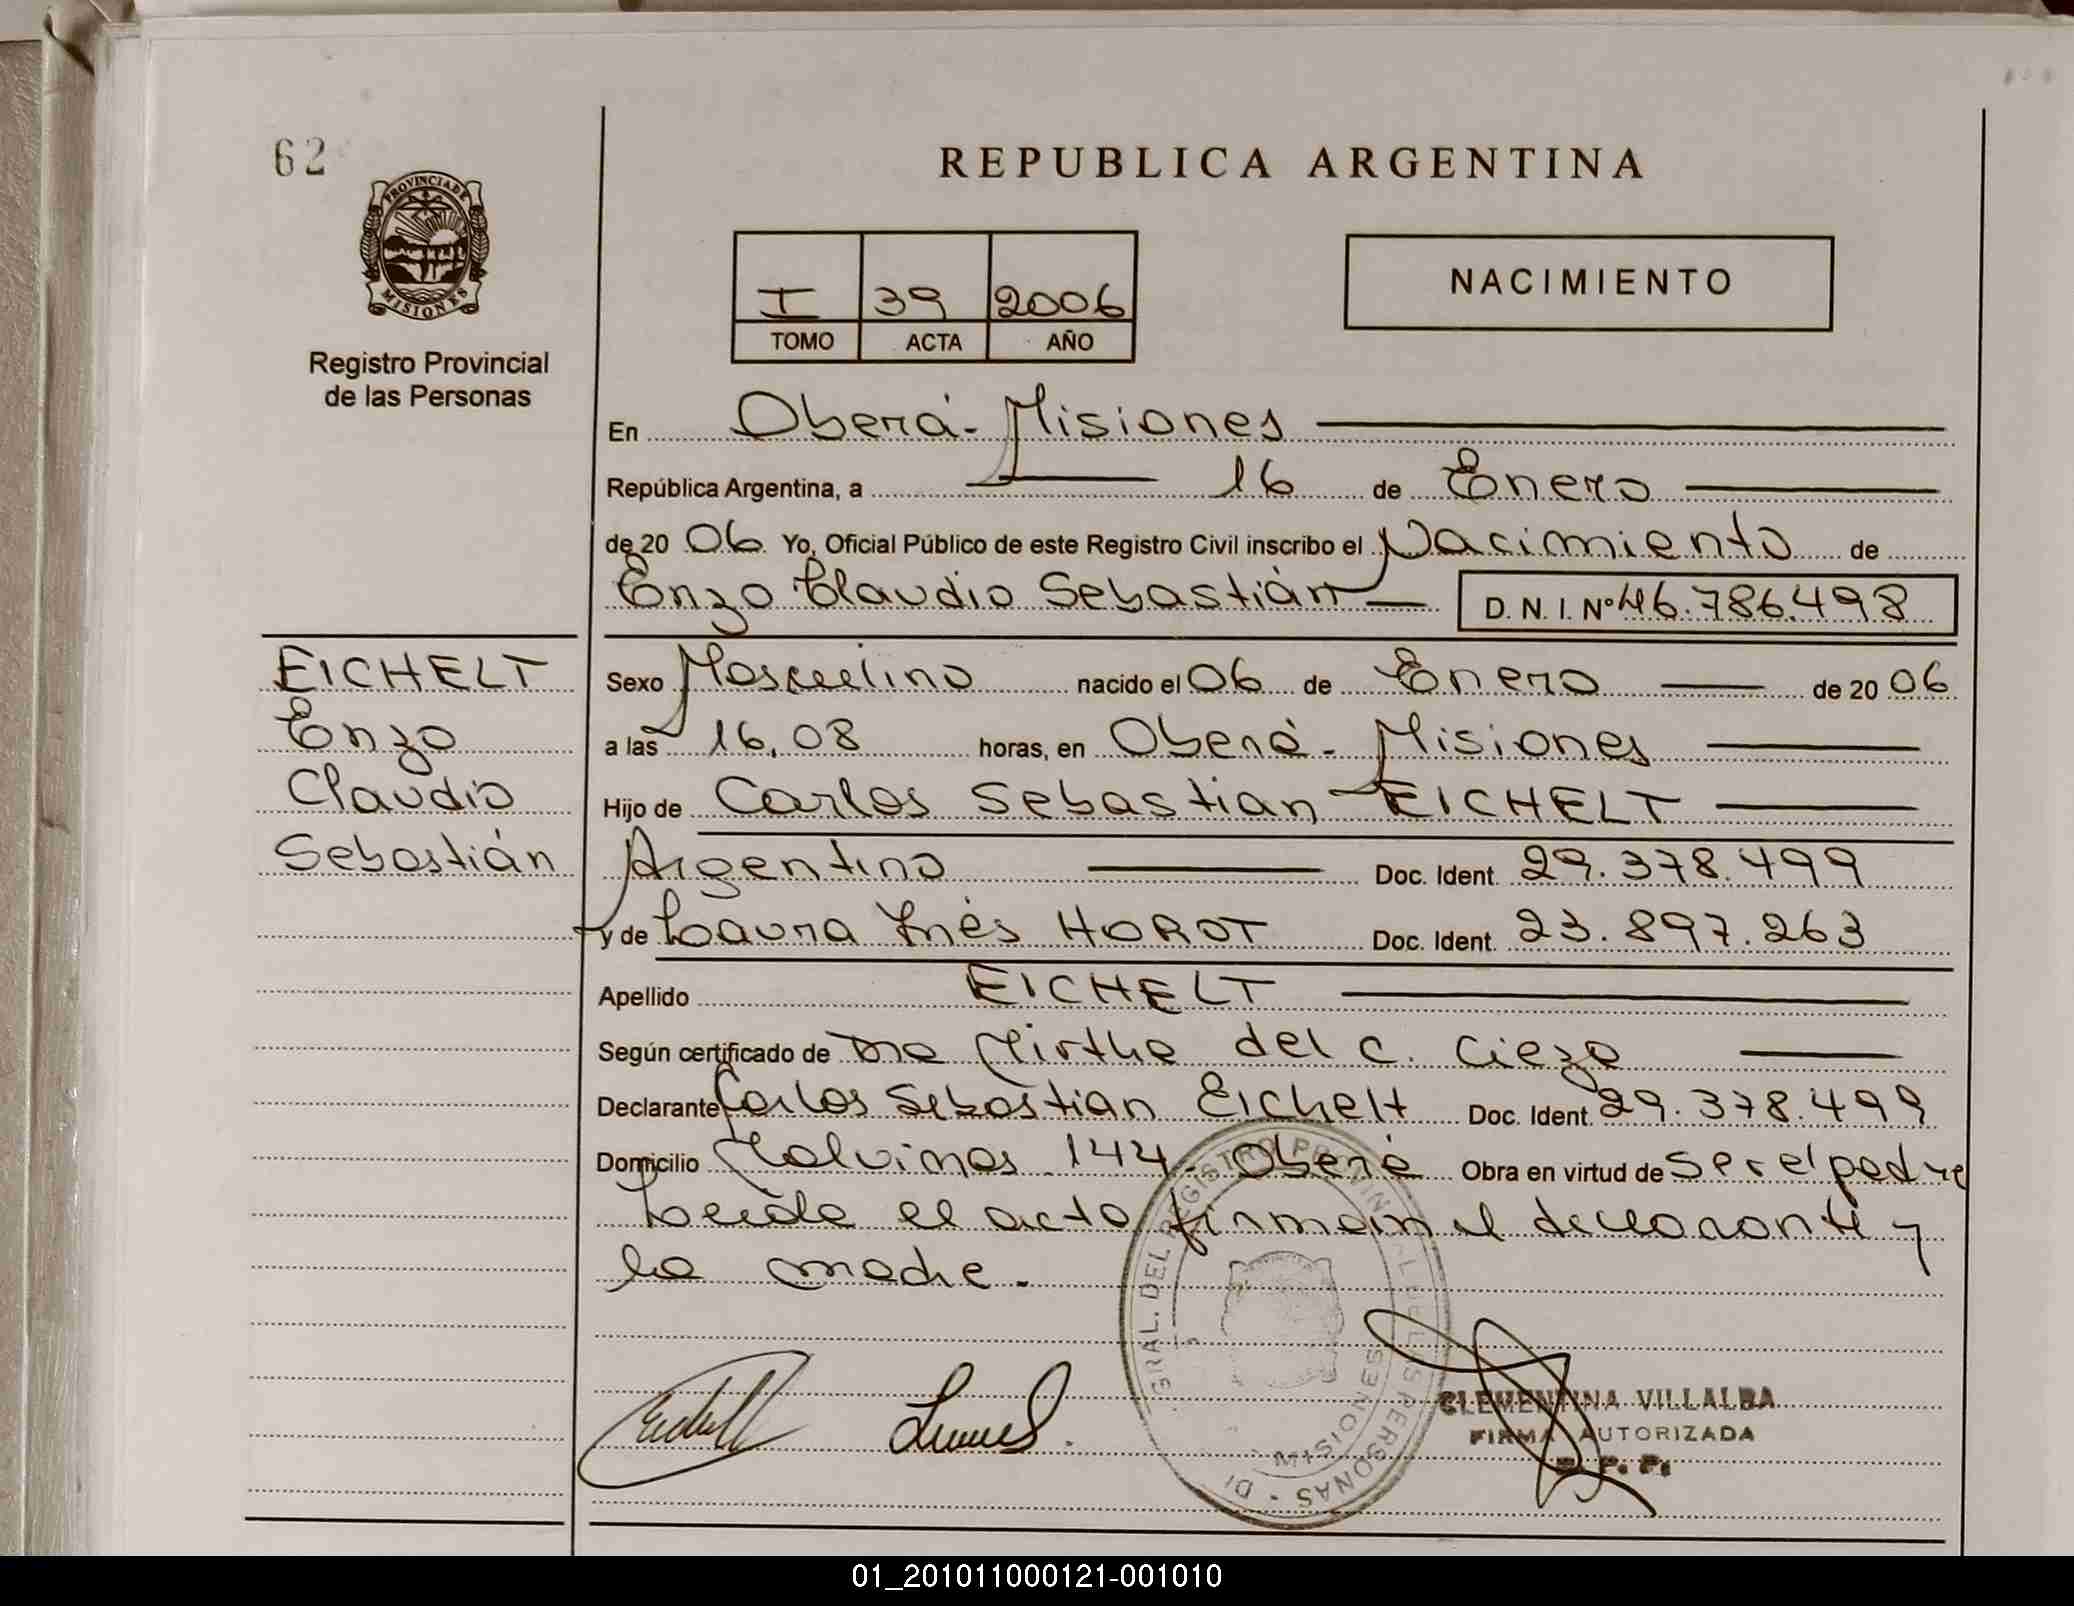 62
PROVINCIA DE
MISIONES
Registro Provincial
de las Personas
REPUBLICA ARGENTINA
I 39 2006
TOMO ACTA AÑO
NACIMIENTO
En Oberá - Misiones
República Argentina, a 16 de Enero
de 20 06 Yo, Oficial Público de este Registro Civil inscribo el Nacimiento de
Enzo Claudio Sebastián D. N. I. Nº 46.786.498
EICHELT
Enzo
Claudio
Sebastián
Sexo Masculino nacido el 06 de Enero de 20 06
a las 16,08 horas, en Oberá - Misiones
Hijo de Carlos Sebastian EICHELT
Argentino Doc. Ident. 29.378.499
y de Laura Inés HOROT Doc. Ident. 23.897.263
Apellido EICHELT
Según certificado de Mirtha del C. Cieza
Declarante Carlos Sebastian Eichelt Doc. Ident. 29.378.499
Domicilio Malvinas 144 - Oberá Obra en virtud de ser el padre
Leida el acta firman el declarante y
la madre.
GRAL. DEL REGISTRO PROVINCIAL DE LAS PERSONAS - DI
MISIONES
CLEMENTINA VILLALBA
FIRMA AUTORIZADA
R. P. P.
01_201011000121-001010